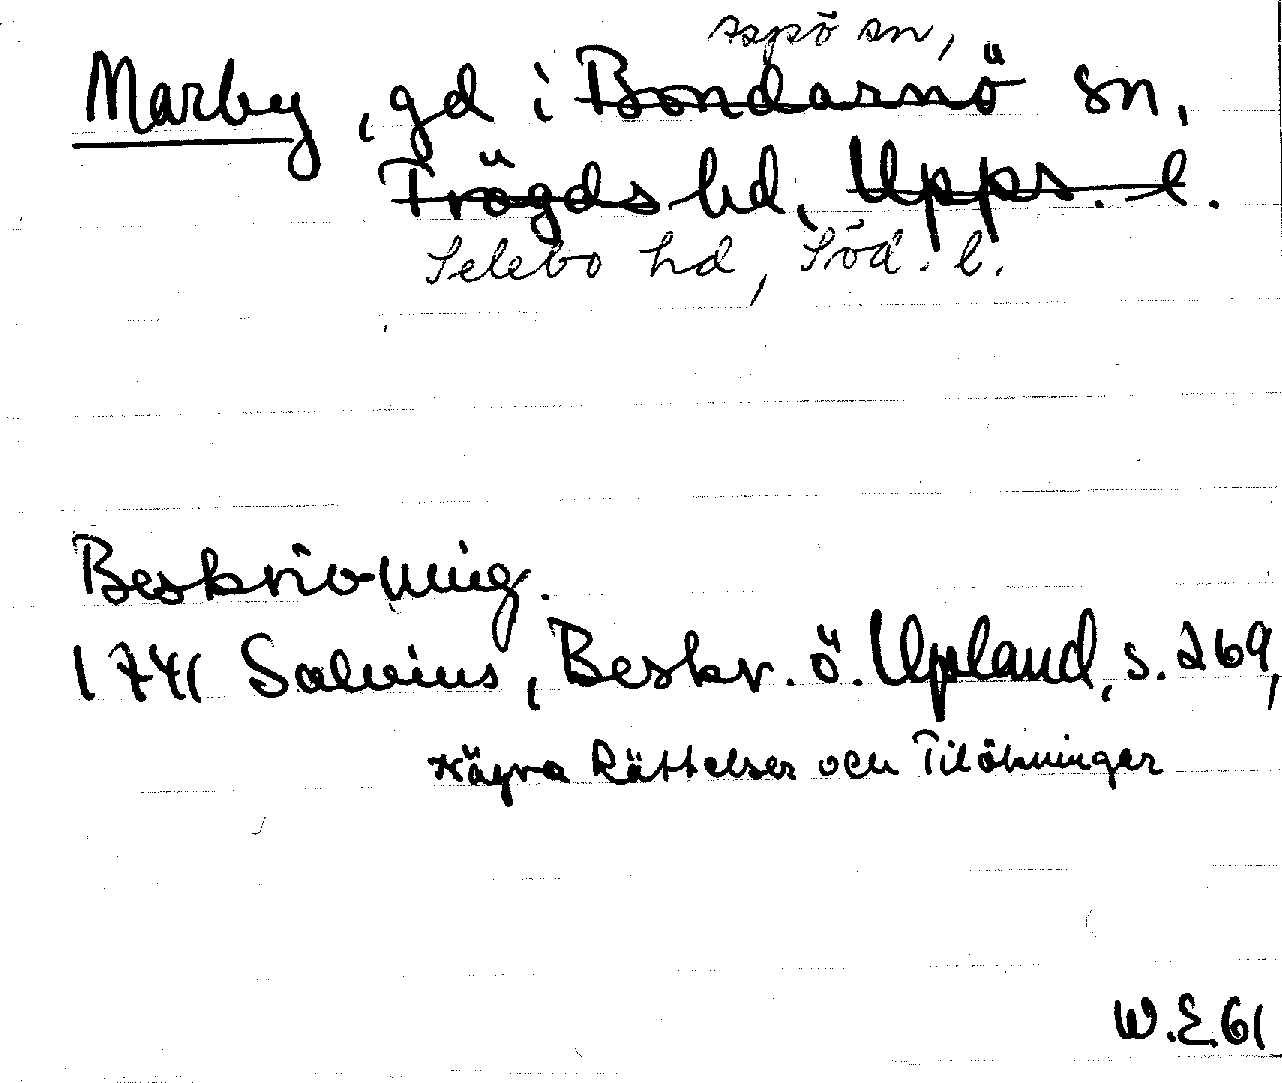 Aspö sn,
Marby, gd i Bondarnö sn,
Trögds hd, Upps. l.
Selebo hd, Söd. l.
Beskrivning.
1741 Salvius, Beskr. ö. Upland, s. 269,
Några Rättelser och Tilökningar
W.E.61